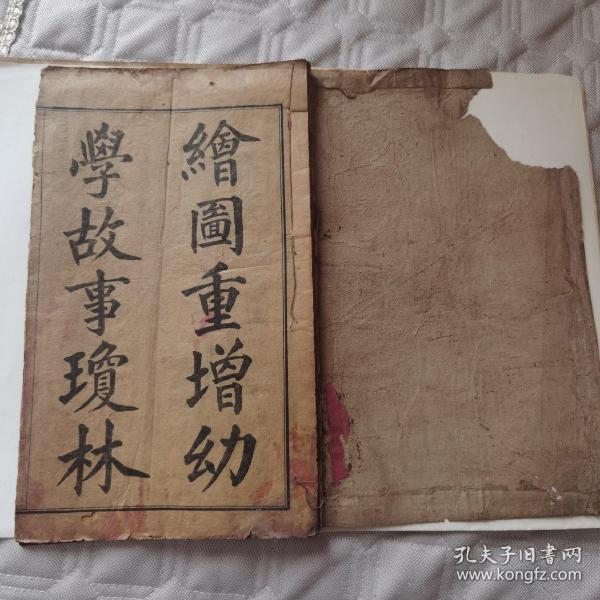 繪圖重增幼
學故事瓊林
孔夫子旧書网
www.kongfz.com